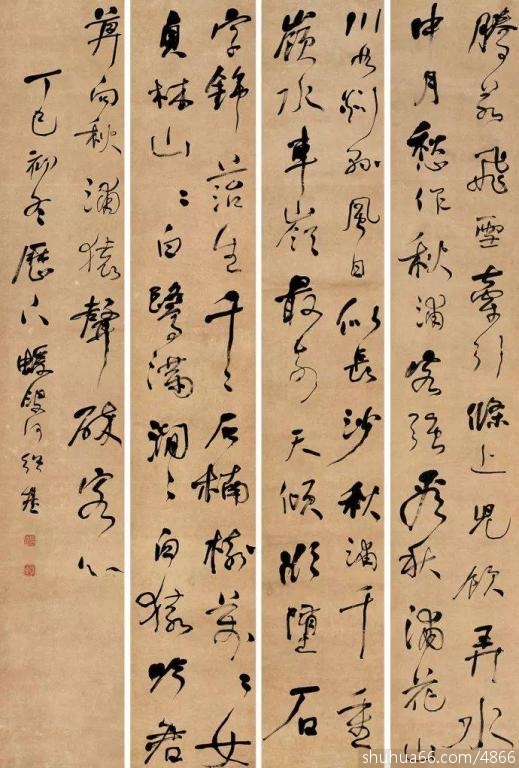 騰若飛雪牽引條上兒飲弄水
中月愁作秋浦客強看秋浦花山
川如剡縣風日似長沙秋浦千重
嶺水車嶺最奇天傾欲墮石
生千〻石楠樹萬〻女
貞林山〻白鷺滿澗〻白猿吟君
莫向秋浦猿聲碎客心
丁巳初冬歷下蝯叟何紹基
shuhua66.com/4866